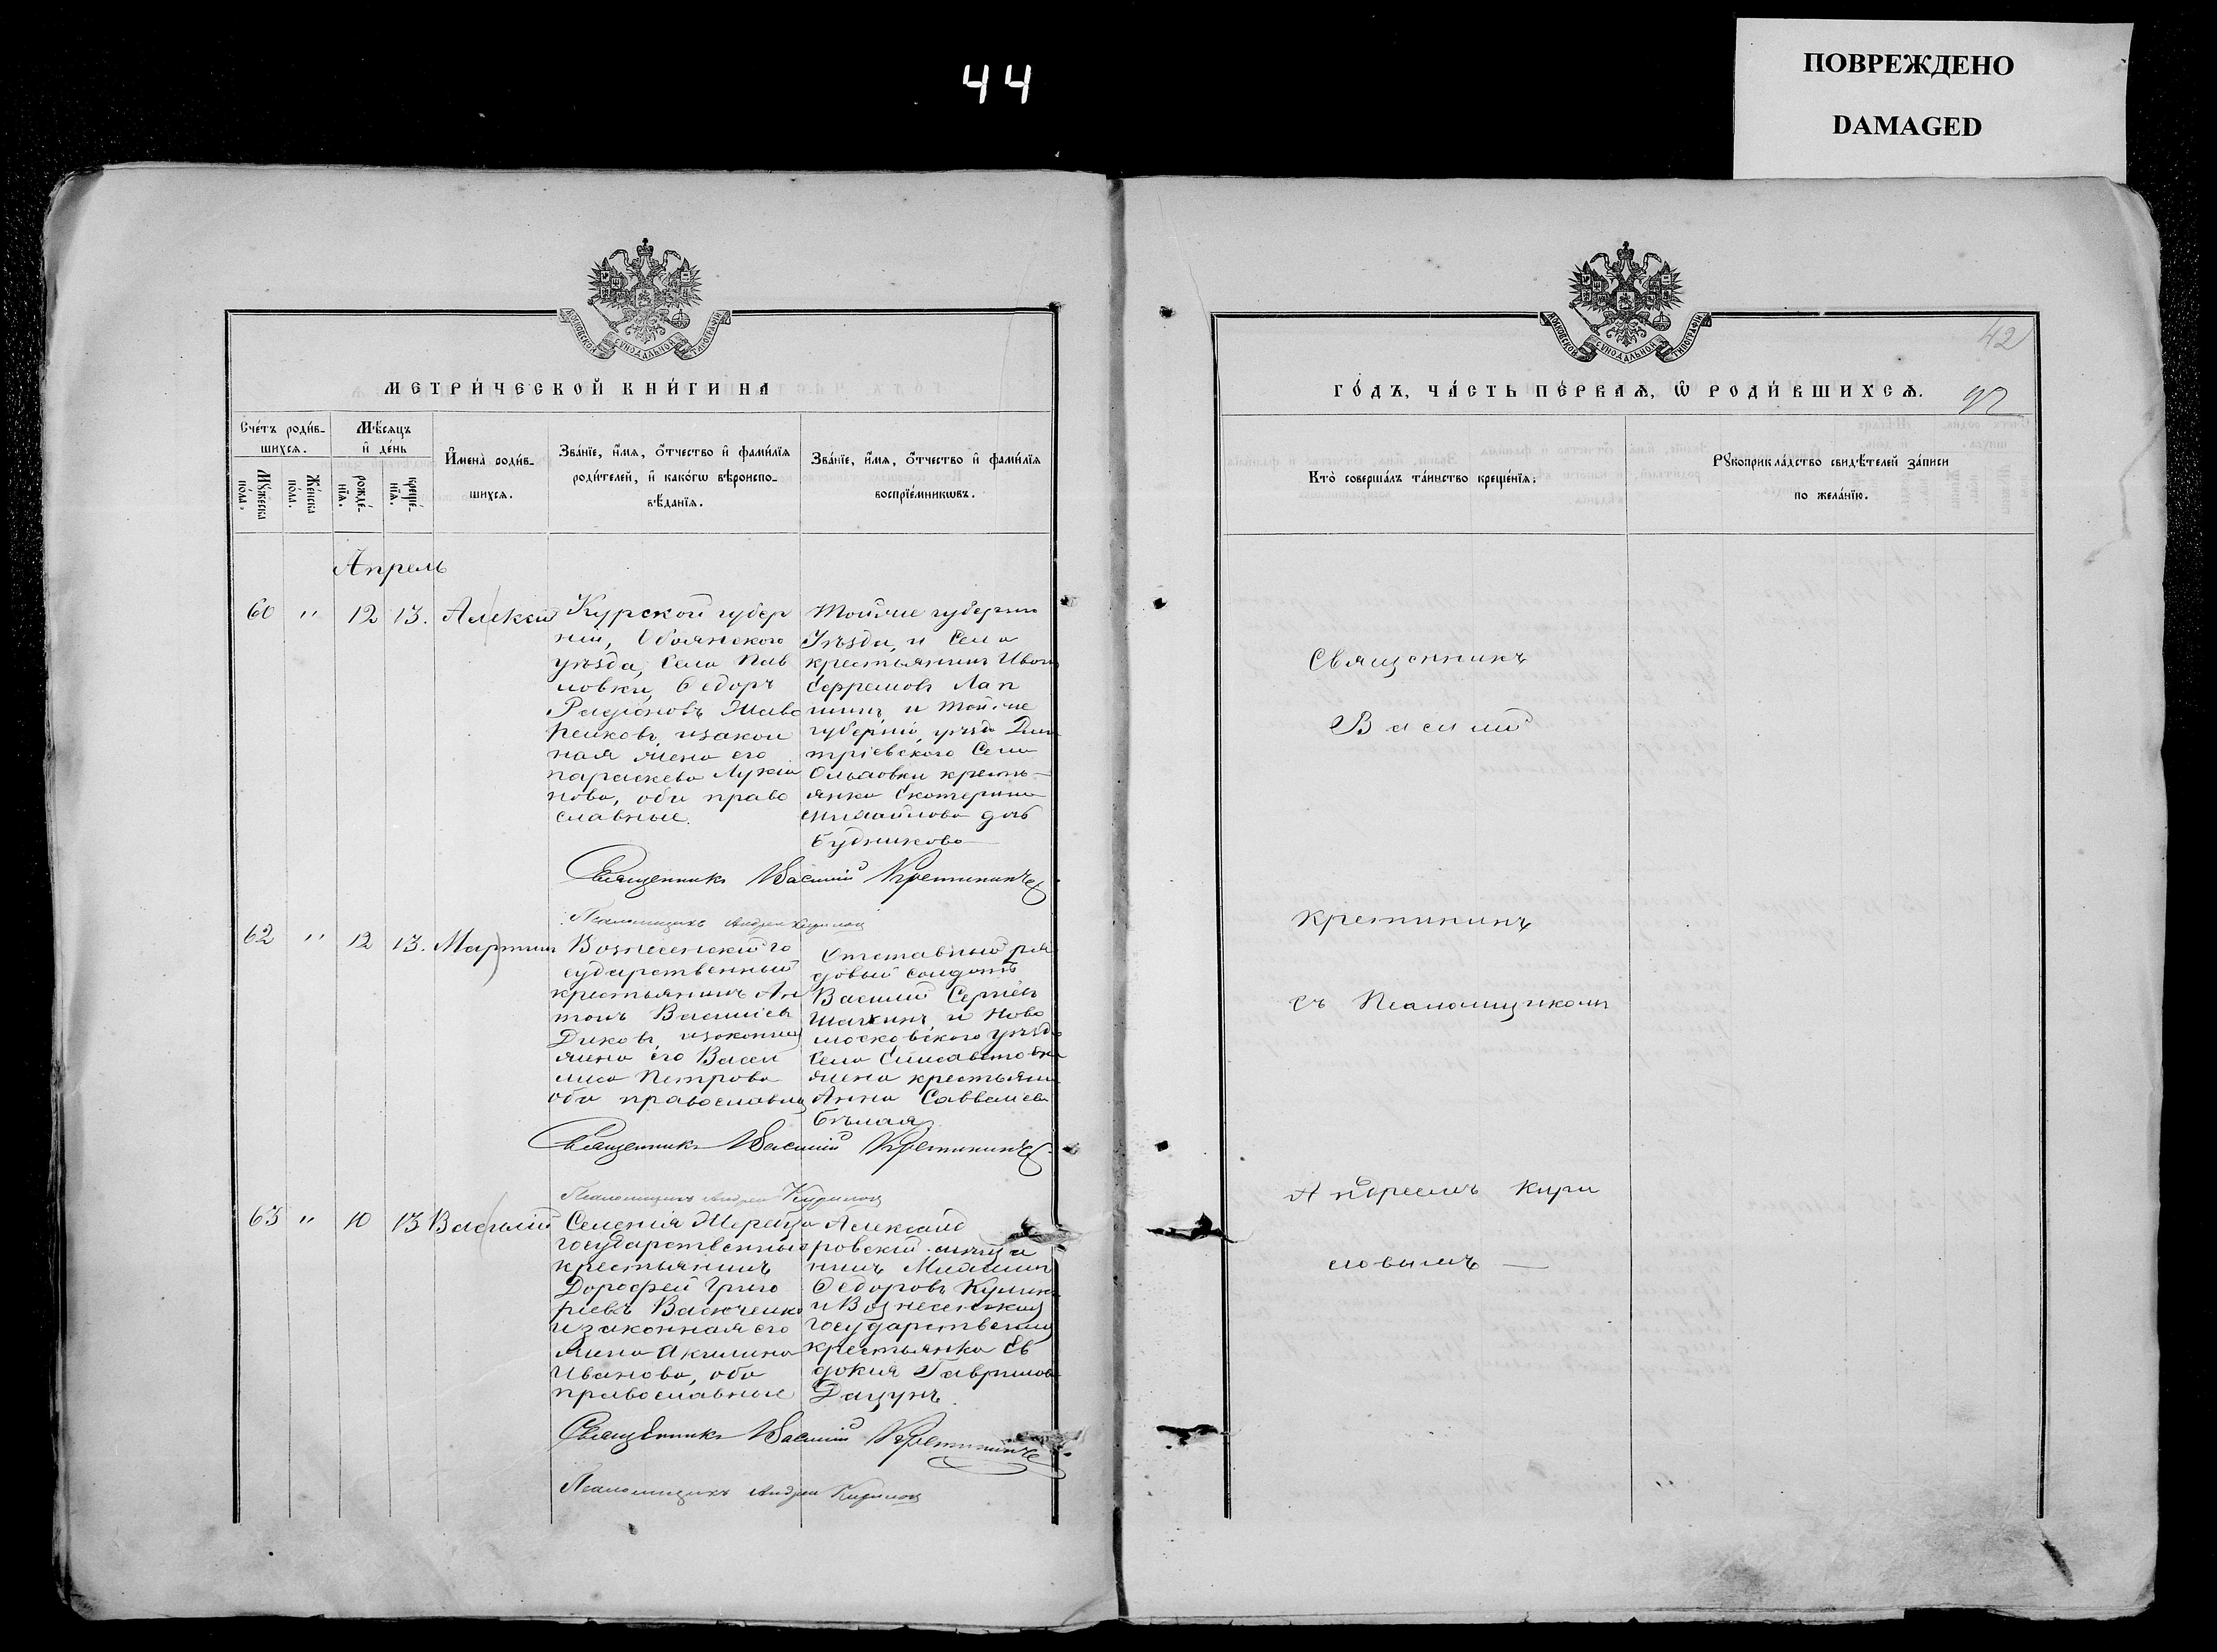 44
ПОВРЕЖДЕНО
DAMAGED
МОСКОВСКОЙ СѴНОДАЛЬНОЙ ТИПОГРАФІИ
МЕТРИ́ЧЕСКОЙ КНИ́ГИ НА
Сче́тъ роди́в-
шихсѧ.
Мꙋ́жеска по́ла.
Же́нска по́ла.
Мѣ́сѧцъ
и҆ де́нь
рожде́-нїѧ.
креще́-нїѧ.
И҆мена̀ роди́в-
шихсѧ.
Зва́нїе, и҆́мѧ, ѻ҆́тчество и҆ фами́лїѧ
роди́телей, и҆ како́гѡ вѣроиспо-
вѣ́данїѧ.
Зва́нїе, и҆́мѧ, ѻ҆́тчество и҆ фами́лїѧ
воспрїе́мникѡвъ.
Апрель
60 " 12 13. Алексій
Курской губер
ніи, Обоянского
уѣзда, Села Пав
ловки, Ѳедоръ
Радіоновъ
изакон
ная жена его
параскева Лукіа
нова, оба право
славные.
Тойже губерніи
Уѣзда, и Села
крестьянинъ Иванъ
Ефремовъ Лап
шинъ и тойже
губерніи, уѣзда Дми
тріевского Села
крестъ-
янка Екатерина
Михайлова дочь
Будникова
Священникъ Василій Кретининъ
Псаломщикъ Андрей Кириловъ
62 " 12 13. Мартинъ
Вознесенскій го
сударственный
крестьянинъ Ан
тонъ Василіевъ
Диковъ, изаконная
жена его Васи
лиса Петрова
оба православны
Отставный ря
довый солдатъ
Василий Сергіевъ
Шалкинъ и Ново
московского уѣзда
Села Елисаветовки
жена крестьянина
Анна Савваиева
Бѣлая
Священникъ Василій Кретининъ
Псаломщикъ Андрей Кириловъ
63 " 10 13 Василій
Селенія Жеребца
государственный
крестьянинъ
Дорофей Григо
ріевъ Васюченко
и законная его
жена Акилина
Иванова, оба
православные
Александ
ровскій мѣща
нинъ Михаилъ
Ѳедоровъ
и Вознесенская
государственная
крестьянка Ев
докия Гаврилова
Дацунъ
Священникъ Василій Кретининъ
Псаломщикъ Андрей Кириловъ
42
МОСКОВСКОЙ СѴНОДАЛЬНОЙ ТИПОГРАФІИ
ГО́ДЪ, ЧА́СТЬ ПЕ́РВАѦ, Ѡ҆ РОДИ́ВШИХСѦ.
Кто̀ соверша́лъ та́инство креще́нїѧ.
Рꙋкоприкла́дство свидѣ́телей за́писи
по жела́нїю.
Священникъ
Василий
Кретининъ
съ Псаломщикомъ
Андреемъ Кири
ловымъ —